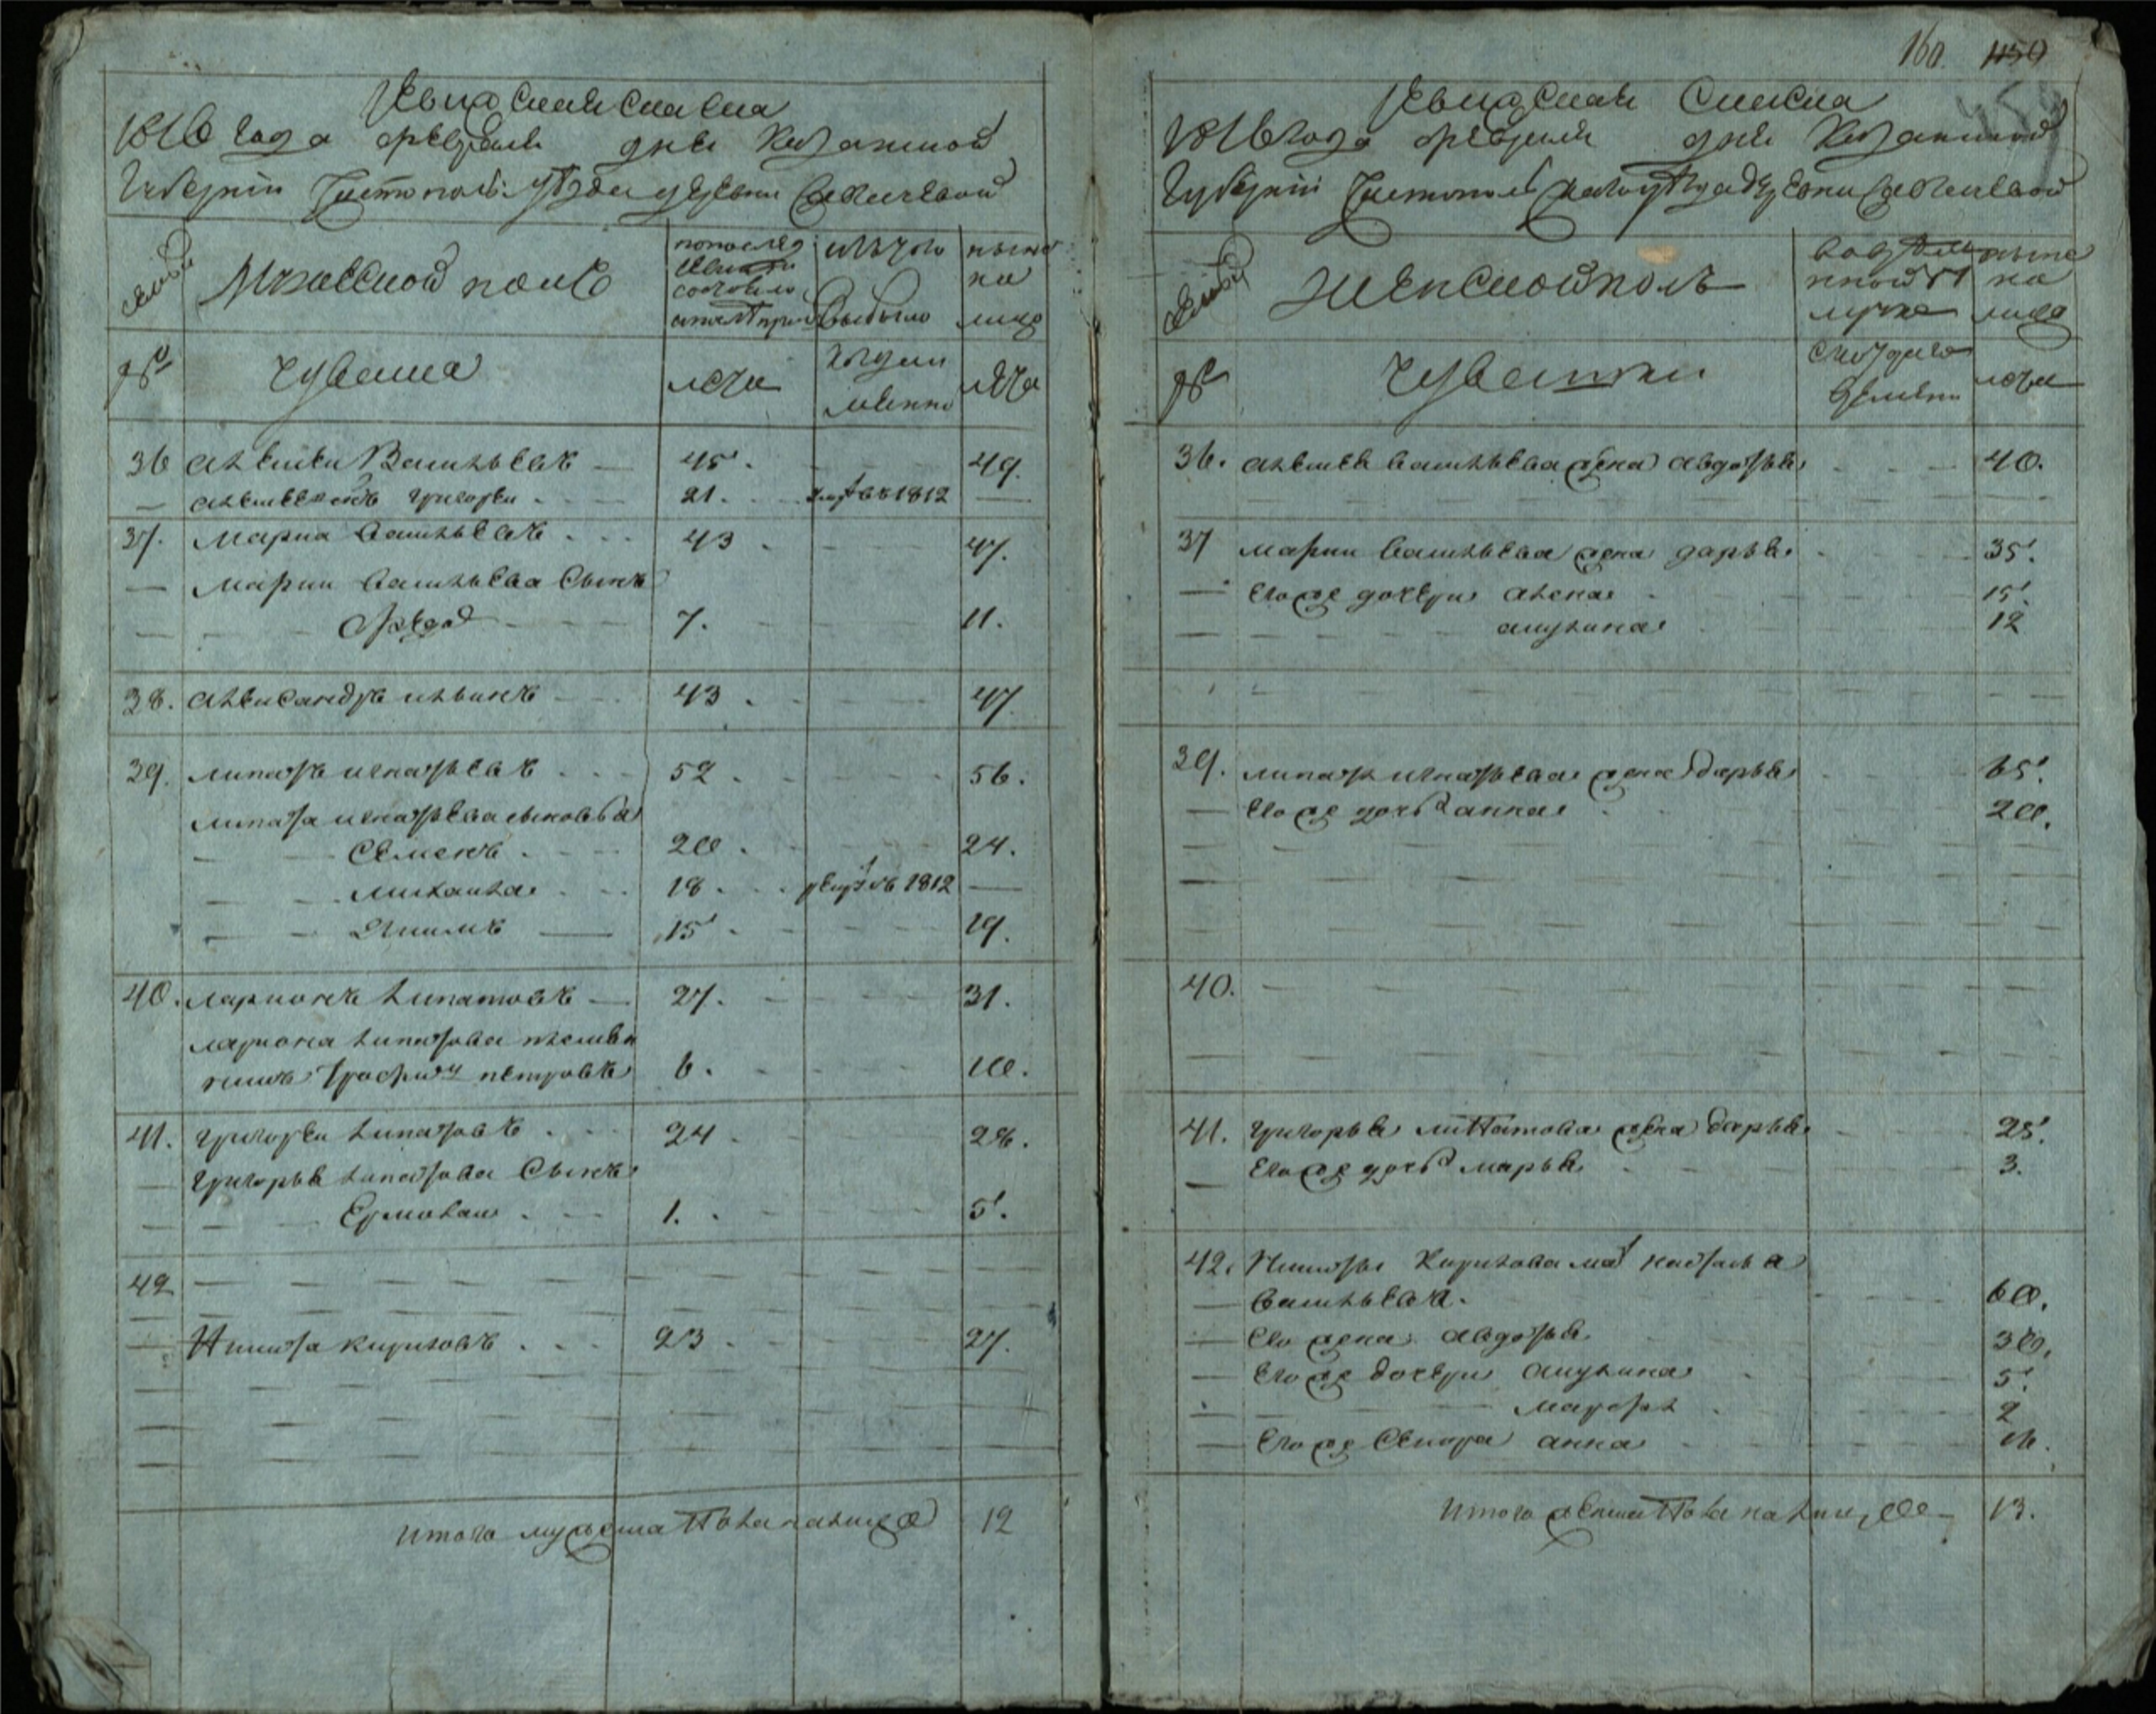 Ревизская сказка
1816 года февраля дня Казанской
Губернии Чистополь: уезда деревни
семьи
Мужеской полъ
по последней ревизии состояло
изъ того выбыло
ныне на лицо
№
Чуваша
лета
когда именно
лета
36 Алексей Васильевъ 45. 49.
Алексеевъ сынъ Григорей 21. рекру въ 1812
37. Марка Васильевъ 43 47.
Марки Васильева Сынъ
Федоръ 7. 11.
38. Александръ Ильинъ 43 47
39. Липатъ Игнатьевъ 52 56.
Липата Игнатьева сыновья
Семенъ 20 24.
Михайла 18 рекру въ 1812
Якимъ 15 19.
40. Ларионъ Липатовъ 27. 31.
Лариона Липатова племян
никъ Трофим Петровъ 6. 10.
41. Григорей Липатовъ 24 28.
Григорья Липатова Сынъ
Ермолай 1. 5.
42
Никита Кириловъ 23 27.
Итого мужеска пола налицо 12
160. 459
Ревизская Сказка
1816 года февраля дня Казанской
Губернии Чистопольскаго уезда деревни
семьи
Женской полъ
во временной отлучке
ныне на лицо
№
Чувашки
с котораго времени
лета
36. Алексея Васильева жена Авдотья 40.
37 Марки Васильева жена Дарья 35.
Его же дочери Алена 15
Акулина 12
39. Липата Игнатьева жена Дарья 65.
Его же дочь Анна 20.
40.
41. Григорья Липатова жена Дарья 25.
Его же дочь Марья 3.
42. Никиты Кирилова мать Наталья
Васильева. 60.
Его жена Авдотья 30.
Его же дочери Акулина 5.
Марфа 2
Его же Сестра Анна 16.
Итого женска пола налицо 13.